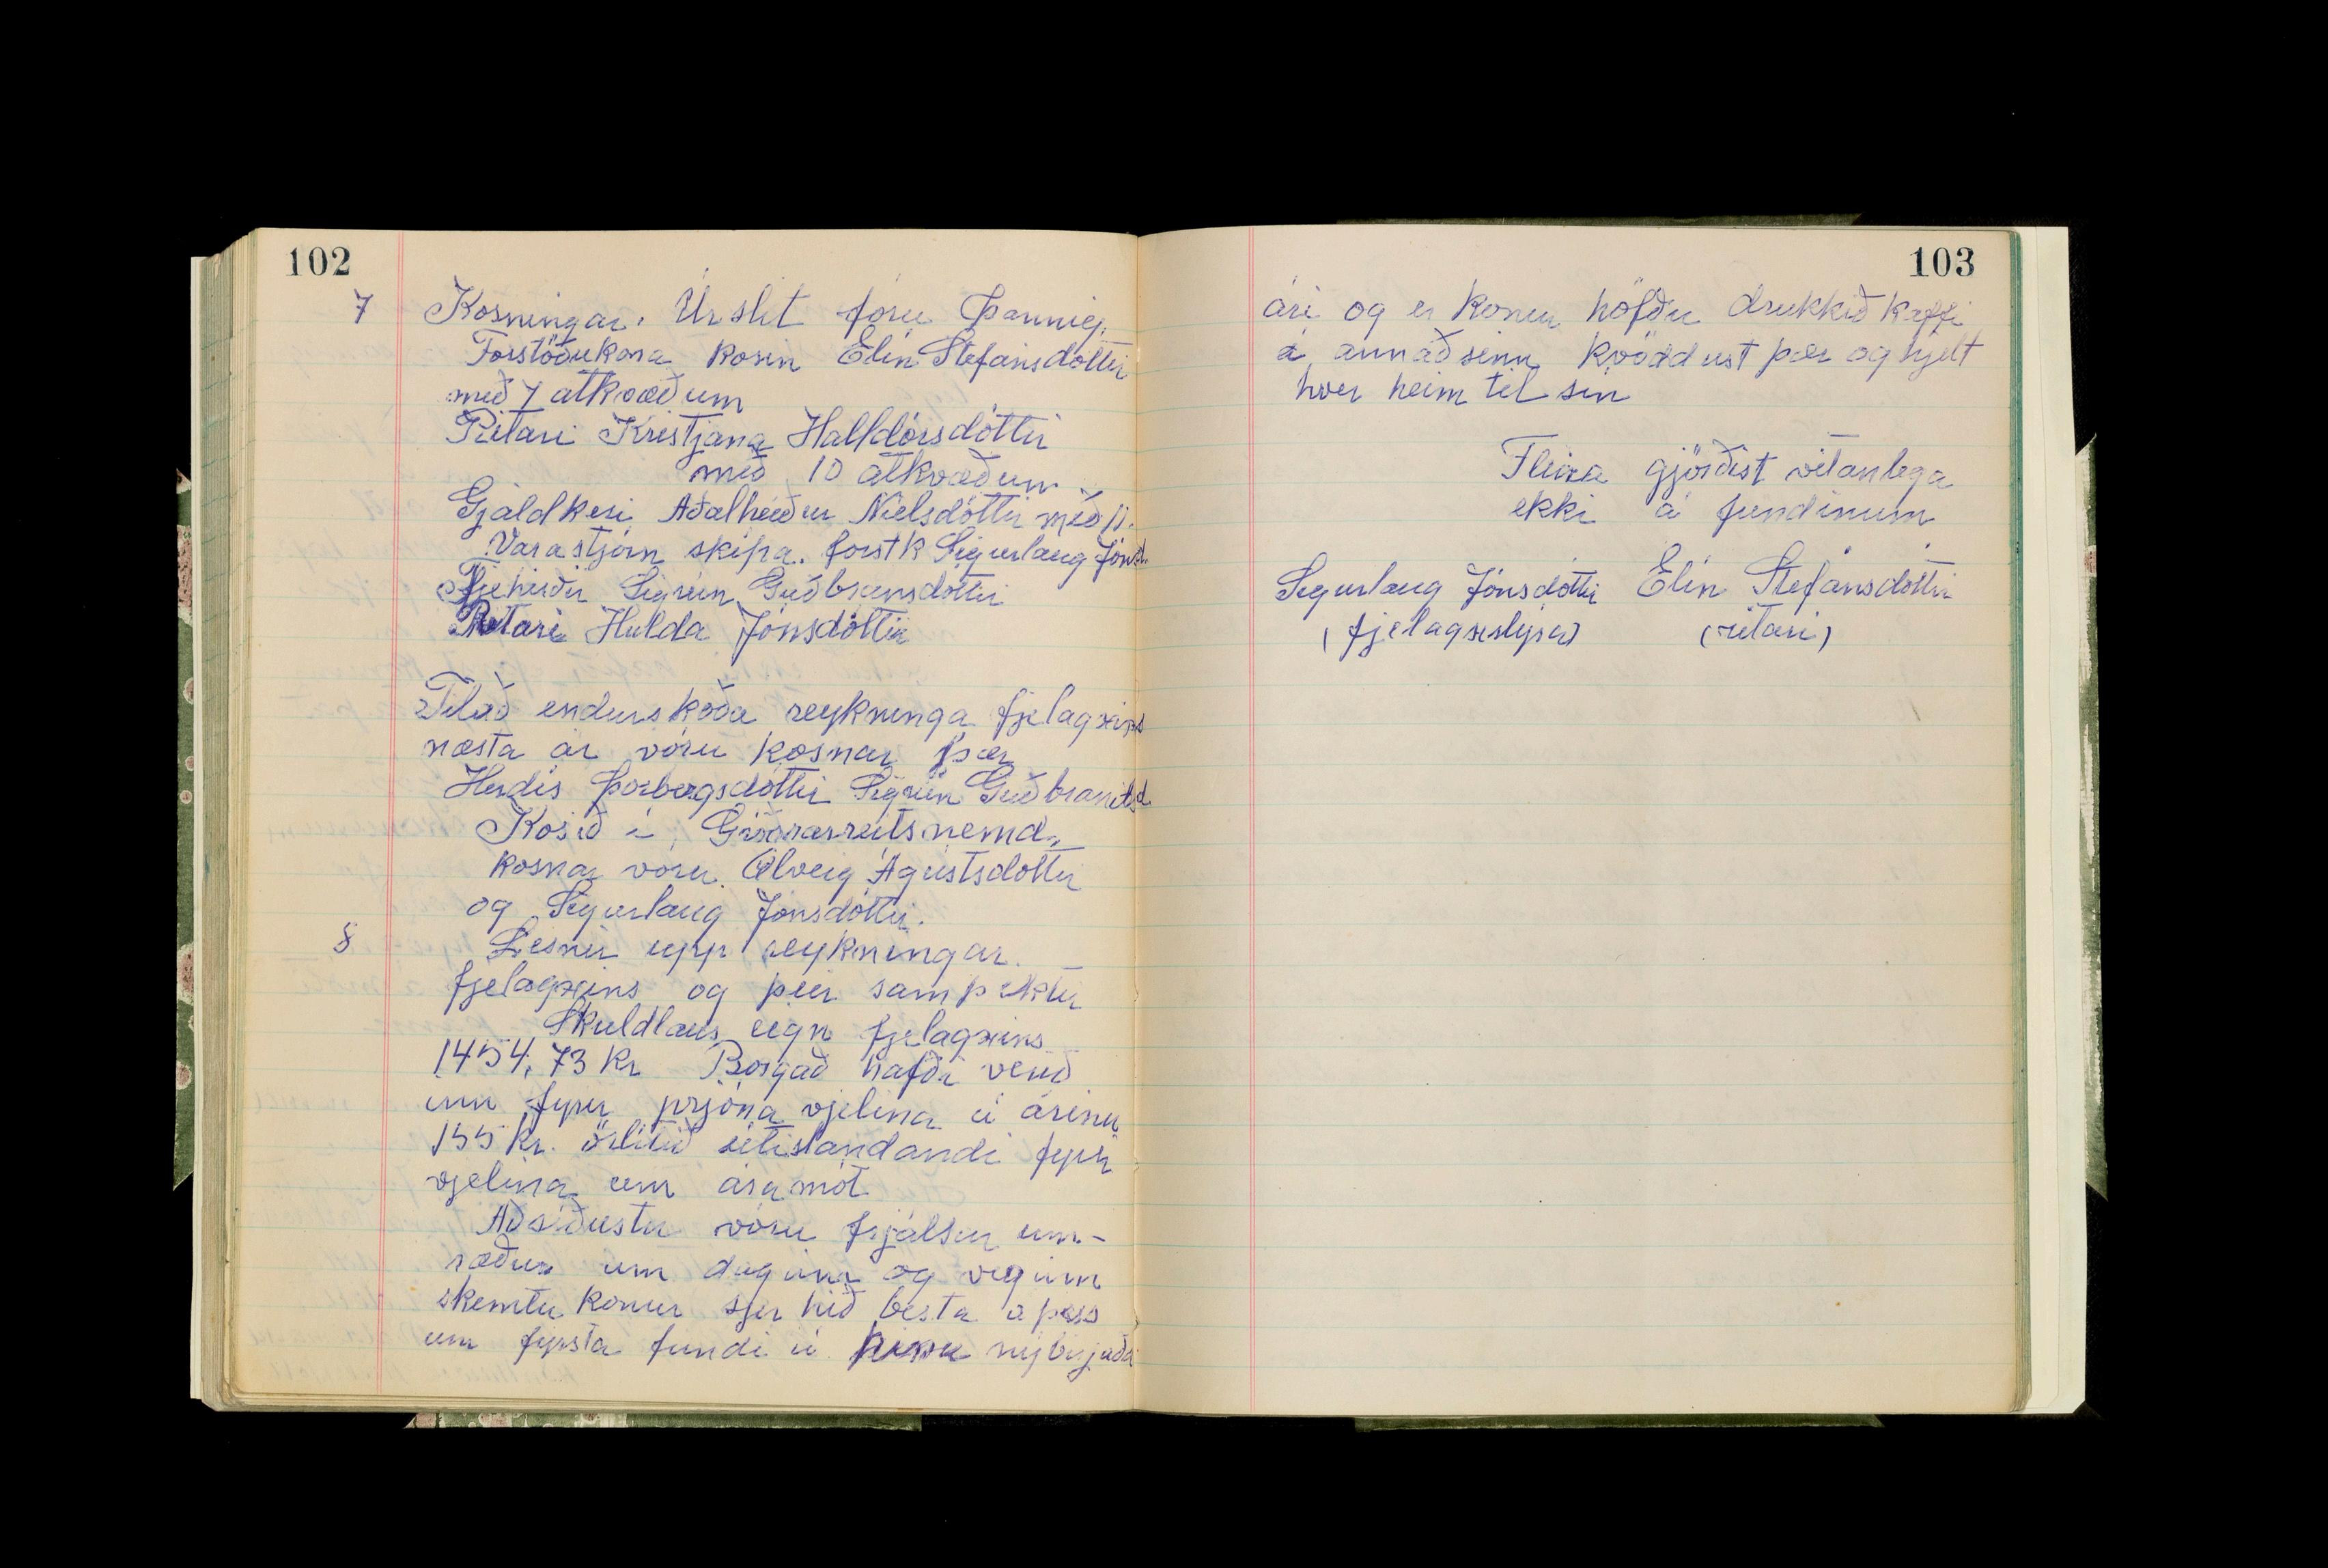 102
7 Kosningar. Úrslit fóru þannig.
Forstöðukona kosin Elín Stefánsdóttir
með 7 atkvæðum
Ritari Kristjana Halldórsdóttir
með 10 atkvæðum
Gjaldkeri Aðalheiður Níelsdóttir með 11.
Varastjórn skipa. forstk Sigurlaug Jónsd.
Fjehirðir Sigrún Guðbransdóttir
Ritari Hulda Jónsdóttir
Til að endurskoða reykninga fjelagsins
næsta ár vóru kosnar þær
Herdís Þorbergsdóttir Sigrún Guðbrandsd
Kosið í Gróðrarreitsnemd,
kosnar voru Ölveig Ágústsdóttir
og Sigurlaug Jónsdóttir.
8 Lesnir upp reykningar.
fjelagsins og þeir samþiktir
Skuldlaus eign fjelagsins
1454,73 kr Borgað hafði verið
inn fyrir prjóna vjelina á árinu
155 kr. örlitið útistandandi fyrir
vjelina um áramót
Að síðustu vóru frjálsar um-
ræður um daginn og veginn
skemtu konur sjer hið besta á þess
um fyrsta fundi á hinu nýbirjaða
103
ári og er konur höfðu drukkið kaffi
á annað sinn kvöddust þær og hjelt
hver heim til sín
Fleira gjörðist vitanlega
ekki á fundinum
Sigurlaug Jónsdóttir Elín Stefánsdóttir
(fjelagsslysa) (ritari)